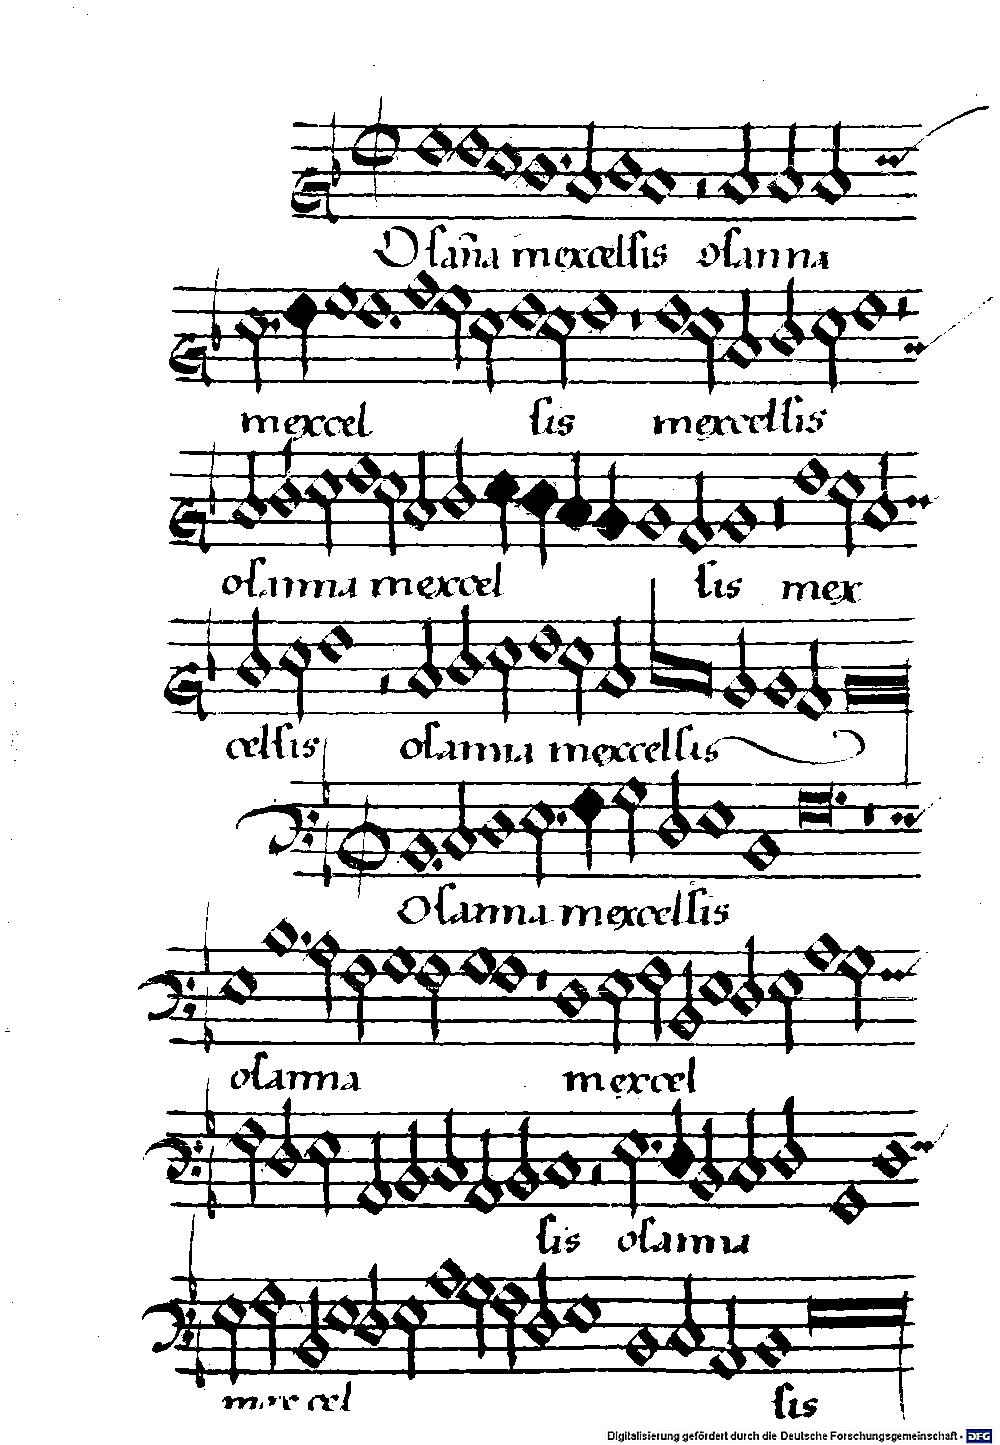 Osan̄a in excelsis osanna
in excel sis in excelsis
osanna in excel sis in ex
celsis osanna in excelsis
Osanna in excelsis
osanna in excel
sis osanna
in excel sis
Digitalisierung gefördert durch die Deutsche Forschungsgemeinschaft - DFG